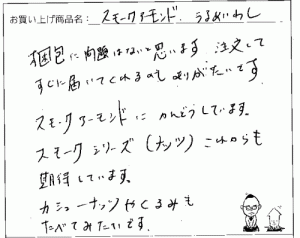 お買い上げ商品名： スモークアーモンド、うるめいわし
梱包に問題はないと思います 注文して
すぐに届いてくれるのもありがたいです
スモークアーモンドにかんどうしています。
スモークシリーズ（ナッツ）これからも
期待しています。
カシューナッツやくるみも
たべてみたいです。